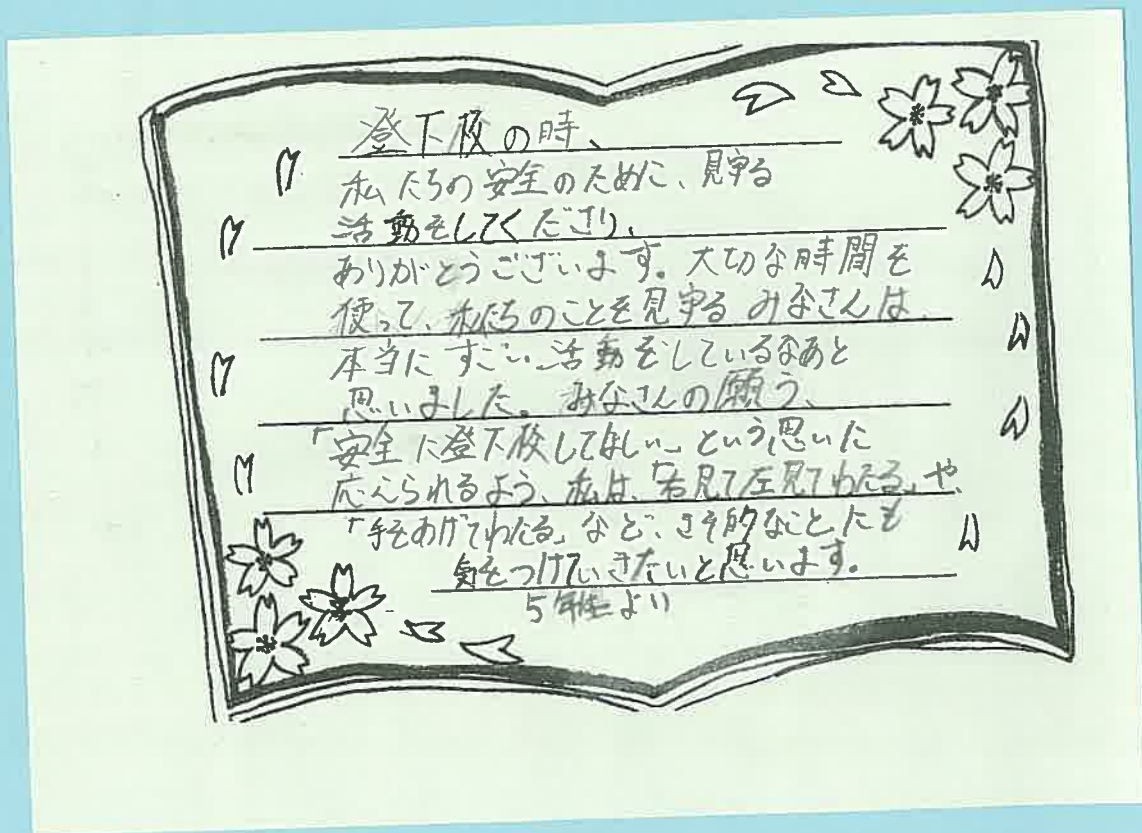 登下校の時、
私たちの安全のために、見守る
活動をしてくださり、
ありがとうございます。大切な時間を
使って、私たちのことを見守るみなさんは、
本当にすごい活動をしているなあと
思いました。みなさんの願う、
「安全に登下校してほしい」という思いに
応えられるよう、私は、「右見て左見てわたる」や、
「手をあげてわたる」など、きそ的なことにも
気をつけていきたいと思います。
5年生より